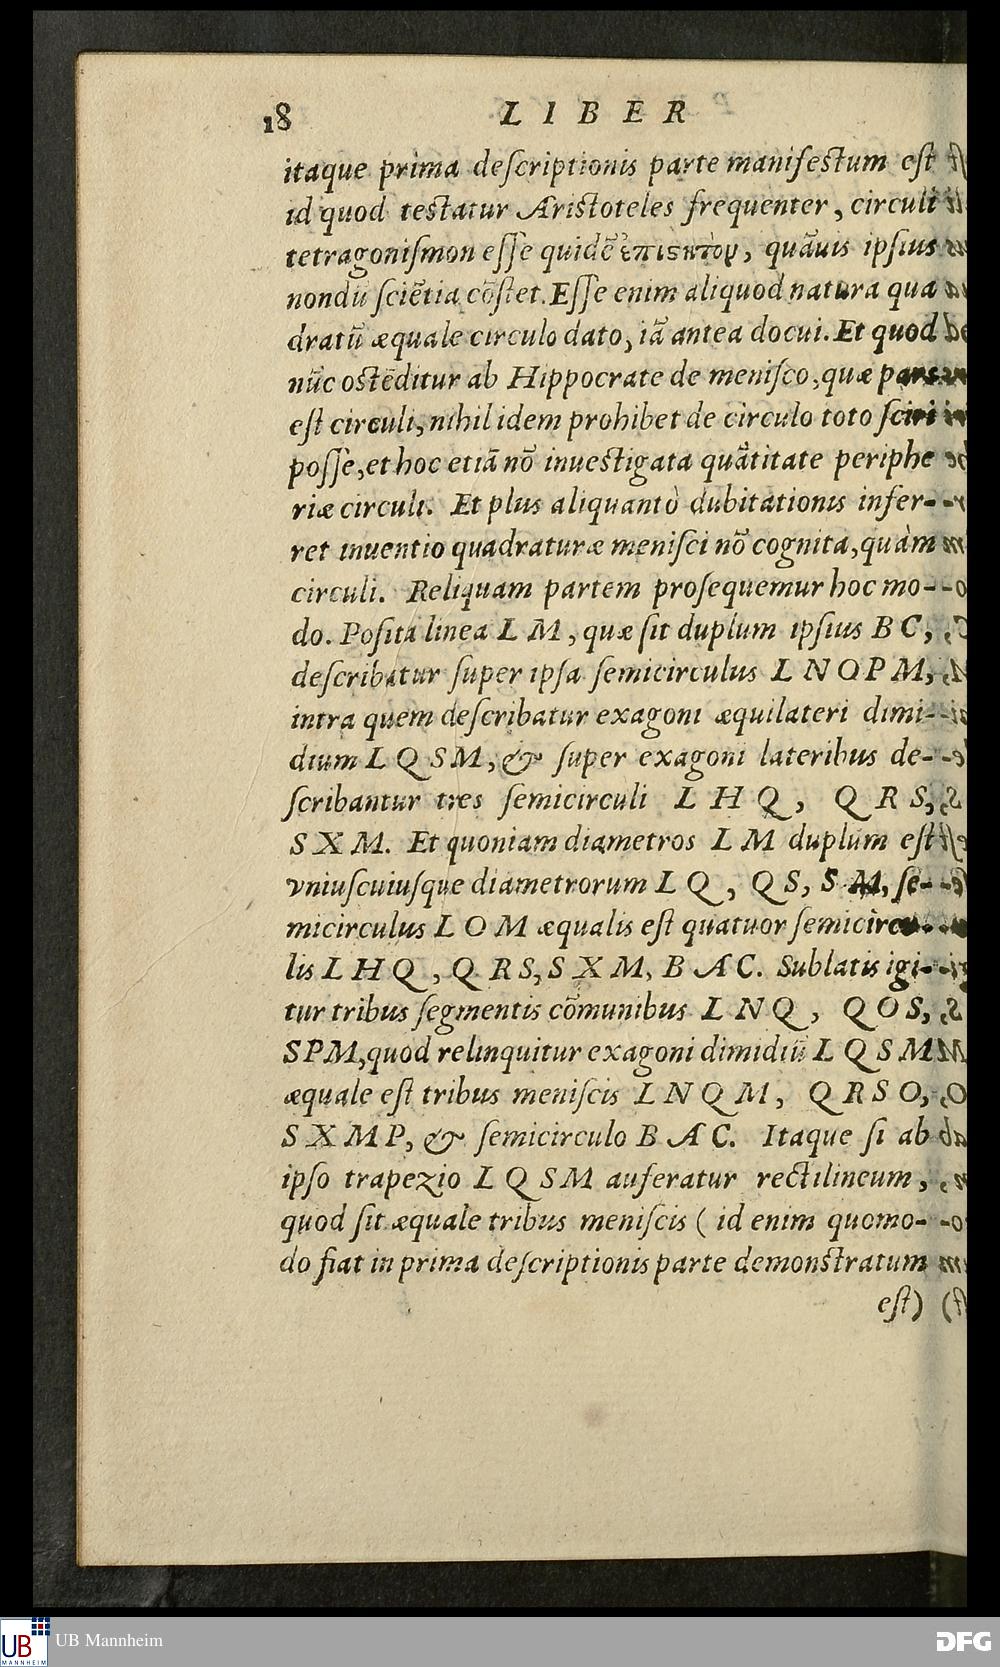 18 LIBER
itaque prima deſcriptionis parte manifeſtum eſt
id quod teſtatur Ariſtoteles frequenter, circuli
tetragoniſmon eſſe quidē ἐπιςητὸν, quāuis ipſius
nondū ſciētia cōſtet. Eſſe enim aliquod natura qua
dratū æquale circulo dato, iā antea docui. Et quod
nūc oſtēditur ab Hippocrate de meniſco, quæ pars
eſt circuli, nihil idem prohibet de circulo toto ſciri
poſſe, et hoc etiā nō inueſtigata quātitate periphe
riæ circuli. Et plus aliquantò dubitationis infer-
ret inuentio quadraturæ meniſci nō cognita, quàm
circuli. Reliquam partem proſequemur hoc mo-
do. Poſita linea L M, quæ ſit duplum ipſius B C,
deſcribatur ſuper ipſa ſemicirculus L N O P M,
intra quem deſcribatur exagoni æquilateri dimi-
dium L Q S M, & ſuper exagoni lateribus de-
ſcribantur tres ſemicirculi L H Q, Q R S,
S X M. Et quoniam diametros L M duplum eſt
vniuſcuiuſque diametrorum L Q, Q S, S M, ſe-
micirculus L O M æqualis eſt quatuor ſemicircu-
lis L H Q, Q R S, S X M, B A C. Sublatis igi-
tur tribus ſegmentis cōmunibus L N Q, Q O S,
S P M, quod relinquitur exagoni dimidiū L Q S M
æquale eſt tribus meniſcis L N Q M, Q R S O,
S X M P, & ſemicirculo B A C. Itaque ſi ab
ipſo trapezio L Q S M auferatur rectilineum,
quod ſit æquale tribus meniſcis ( id enim quomo-
do fiat in prima deſcriptionis parte demonſtratum
eſt)
UB MANNHEIM
UB Mannheim
DFG